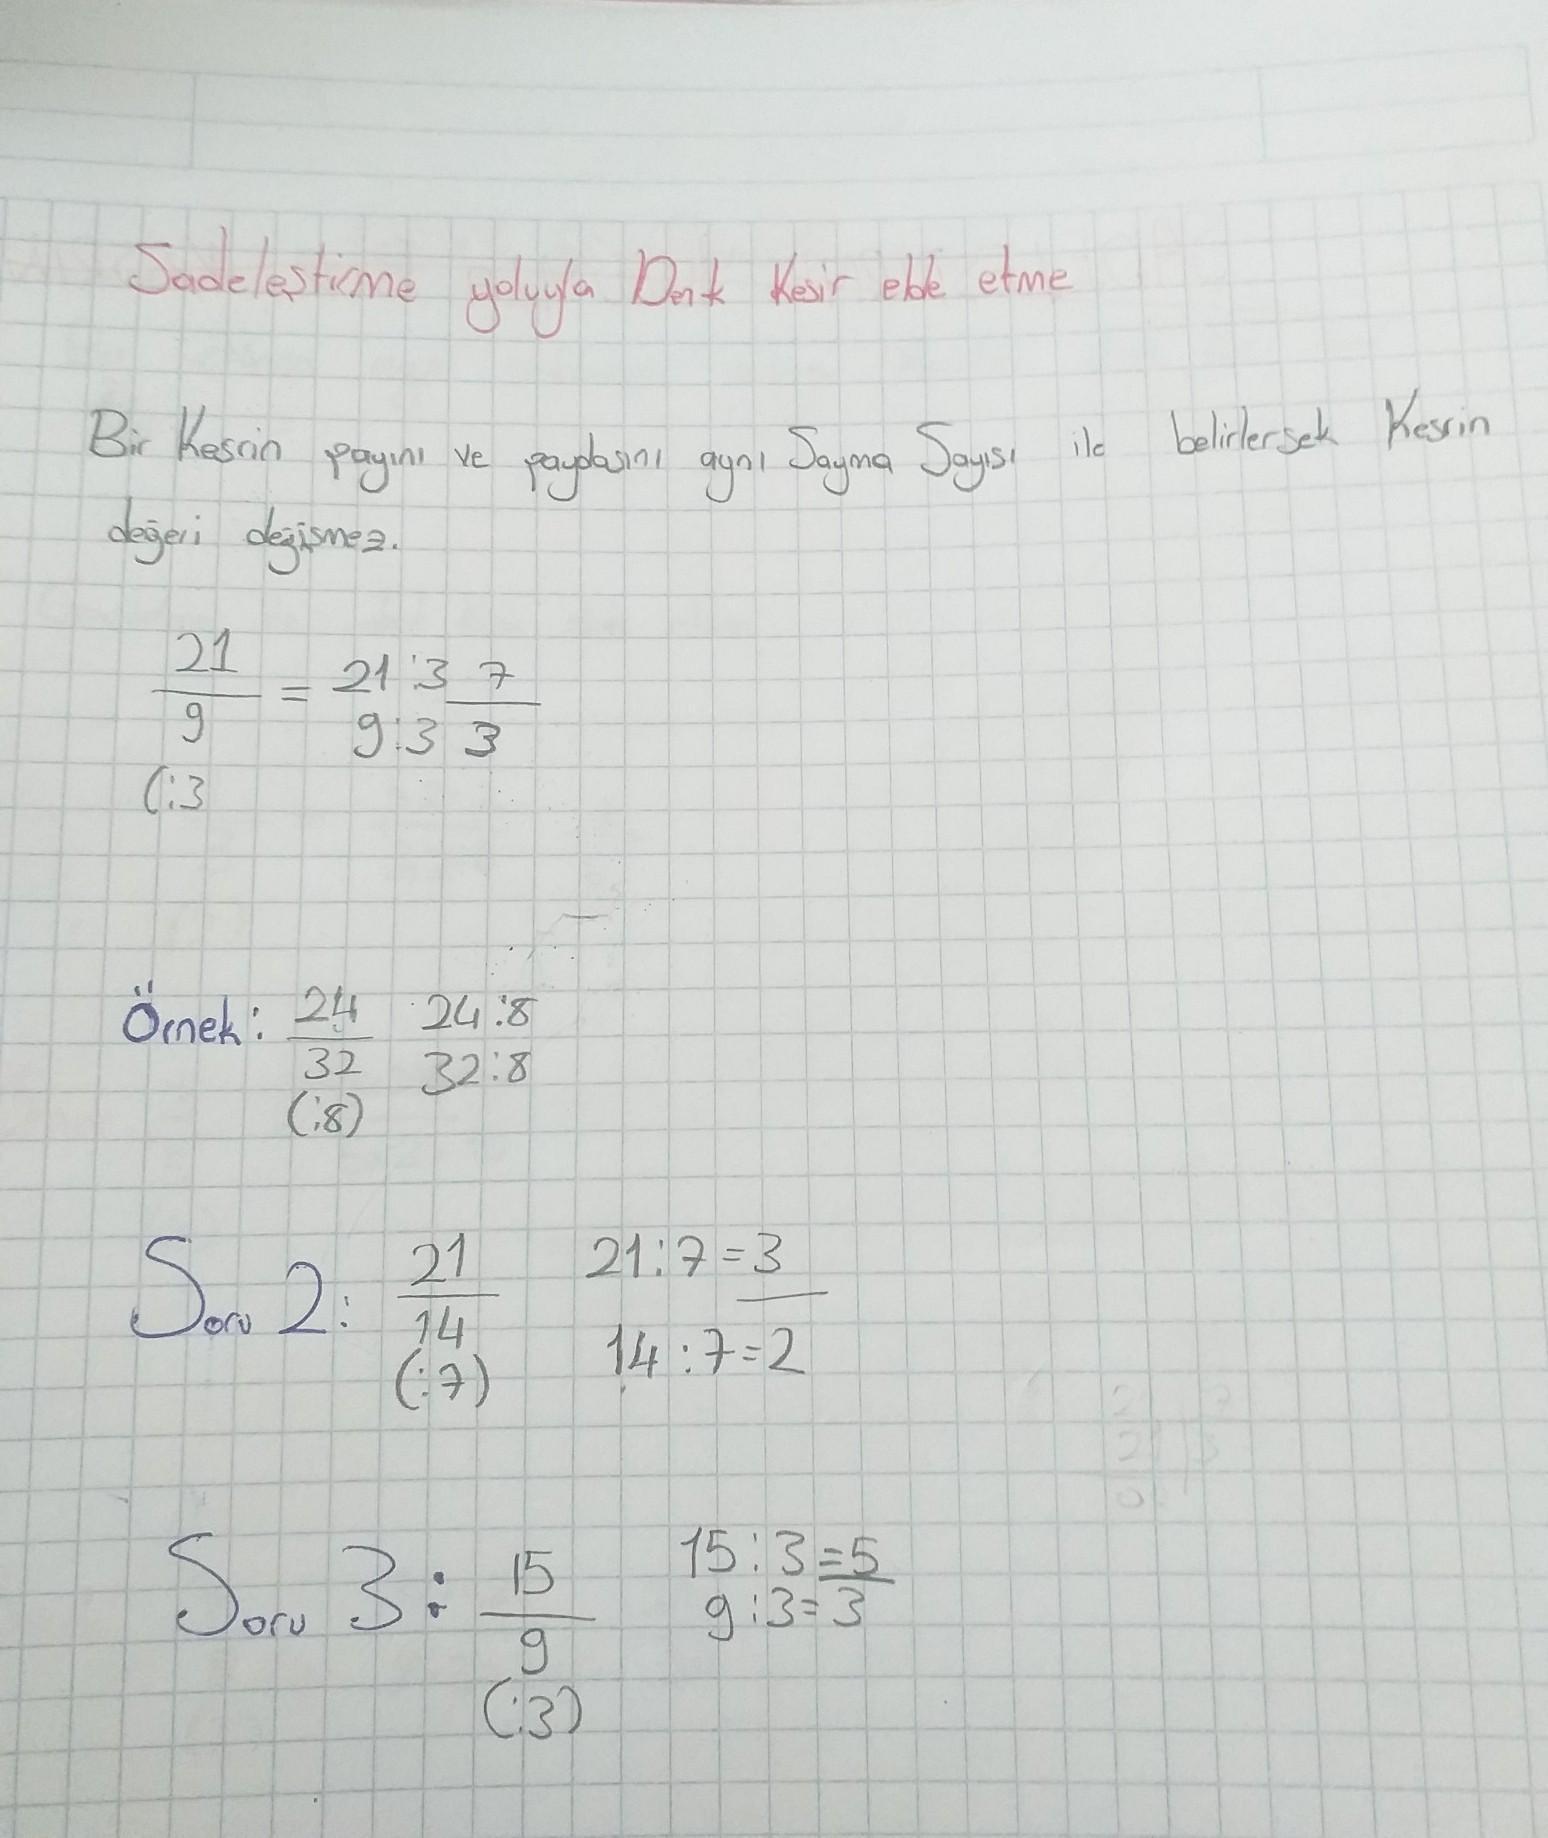 Sadeleştirme yoluyla Denk Kesir elde etme
Bir Kesrin payını ve paydasını aynı Sayma Sayısı ile belirlersek Kesrin
değeri değişmez.
21 = 21:3 7
9 9:3 3
(:3
Örnek: 24 24:8
32 32:8
(:8)
Soru 2: 21 21:7=3
14 14:7=2
(:7)
Soru 3: 15 15:3=5
9 9:3=3
(:3)